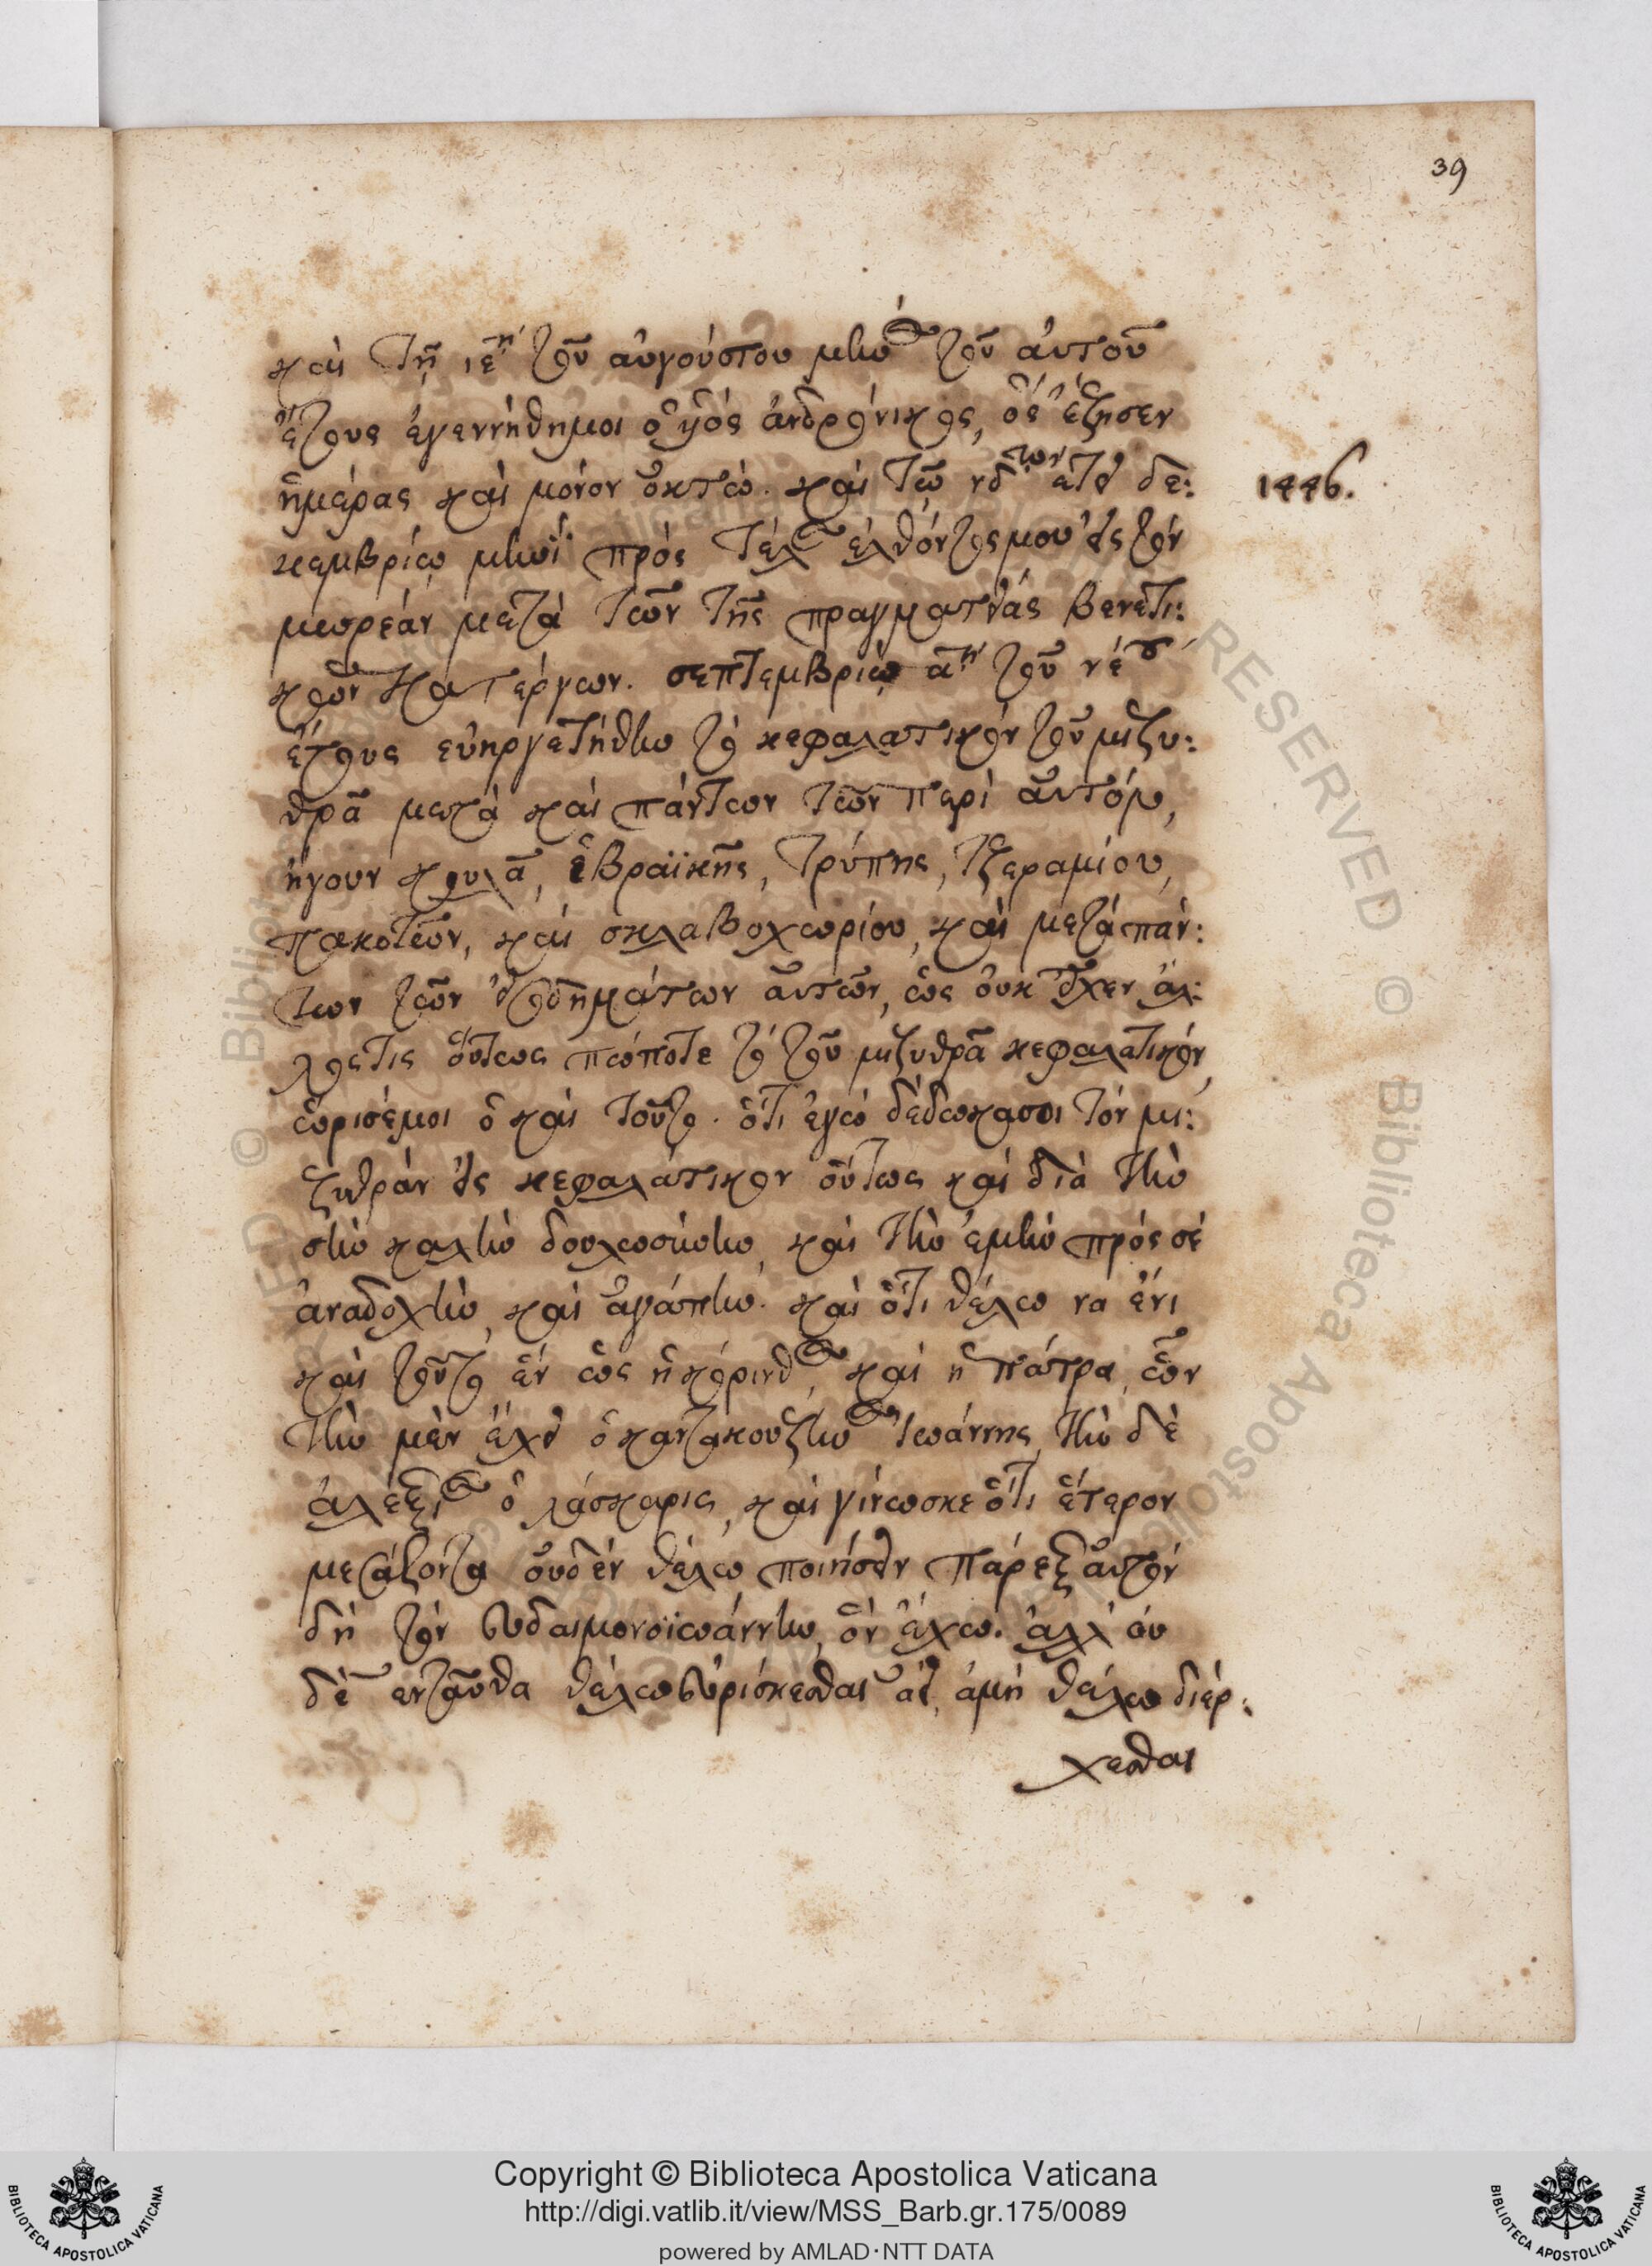 39
καὶ τῇ ιεῃ τοῦ αὐγούστου μηνὸς τοῦ αὐτοῦ
ἔτους ἐγεννήθημοι ὁ υἱός ἀνδρόνικος, ὅς ἔζησεν
ἡμέρας καὶ μόνον ὀκτώ. καὶ τῷ νδ τον ἔτει δε:
κεμβρίῳ μηνὶ πρὸς τέλος ἐλθόντος μου εἰς τὸν
1446.
μωρέαν μετὰ τῶν τῆς πραγματείας βενετι:
κῶν κατέργων. σεπτεμβρίῳ αῃ τοῦ νέου
ἔτους εὐηργετήθην τὸ κεφαλατικὸν τοῦ μιζυ:
θρᾶ μετὰ καὶ πάντων τῶν περὶ αὐτόν,
ἤγουν κουλᾶ, ἑβραϊκῆς, τρύπης, τζεραμίου,
πακοτῶν, καὶ σκλαβοχωρίου, καὶ μετὰ πάν:
των τῶν εἰσοδημάτων αὐτῶν, ὡς οὐκ εἶχεν ἄλ:
λος τις οὕτως πώποτε τὸ τοῦ μιζυθρᾶ κεφαλατικόν,
ὡρισέμοι ὁ καὶ τοῦτο. ὅτι ἐγὼ δέδωκασοι τὸν μι:
ζηθρὰν εἰς κεφαλάτικον οὕτως καὶ διὰ τὴν
σὴν καλὴν δουλωσύνην, καὶ τὴν ἐμὴν πρὸς σέ
ἀναδοχὴν, καὶ ἀγάπην. καὶ ὅτι θέλω να ἔνι
καὶ τοῦτο ἕν ὡς ἡ κόρινθος, καὶ ἡ πάτρα, ὧν
τὴν μὲν ἔχει ὁ καντακουζηνὸς Ἰωάννης, τὴν δὲ
ἀλέξιος ὁ λάσκαρις, καὶ γίνωσκε ὅτι ἕτερον
μεσάζοντα οὐδέν θέλω ποιήσειν πάρεξ αὐτόν
δή τὸν εὐδαιμονοϊωάννην, ὅν ἔχω. ἀλλ' οὐ
δὲ ἐνταῦθα θέλω εὑρίσκεσθαι ἀεί, ἀμή θέλω διέρ:
χεσθαι
Copyright © Biblioteca Apostolica Vaticana
http://digi.vatlib.it/view/MSS_Barb.gr.175/0089
powered by AMLAD·NTT DATA